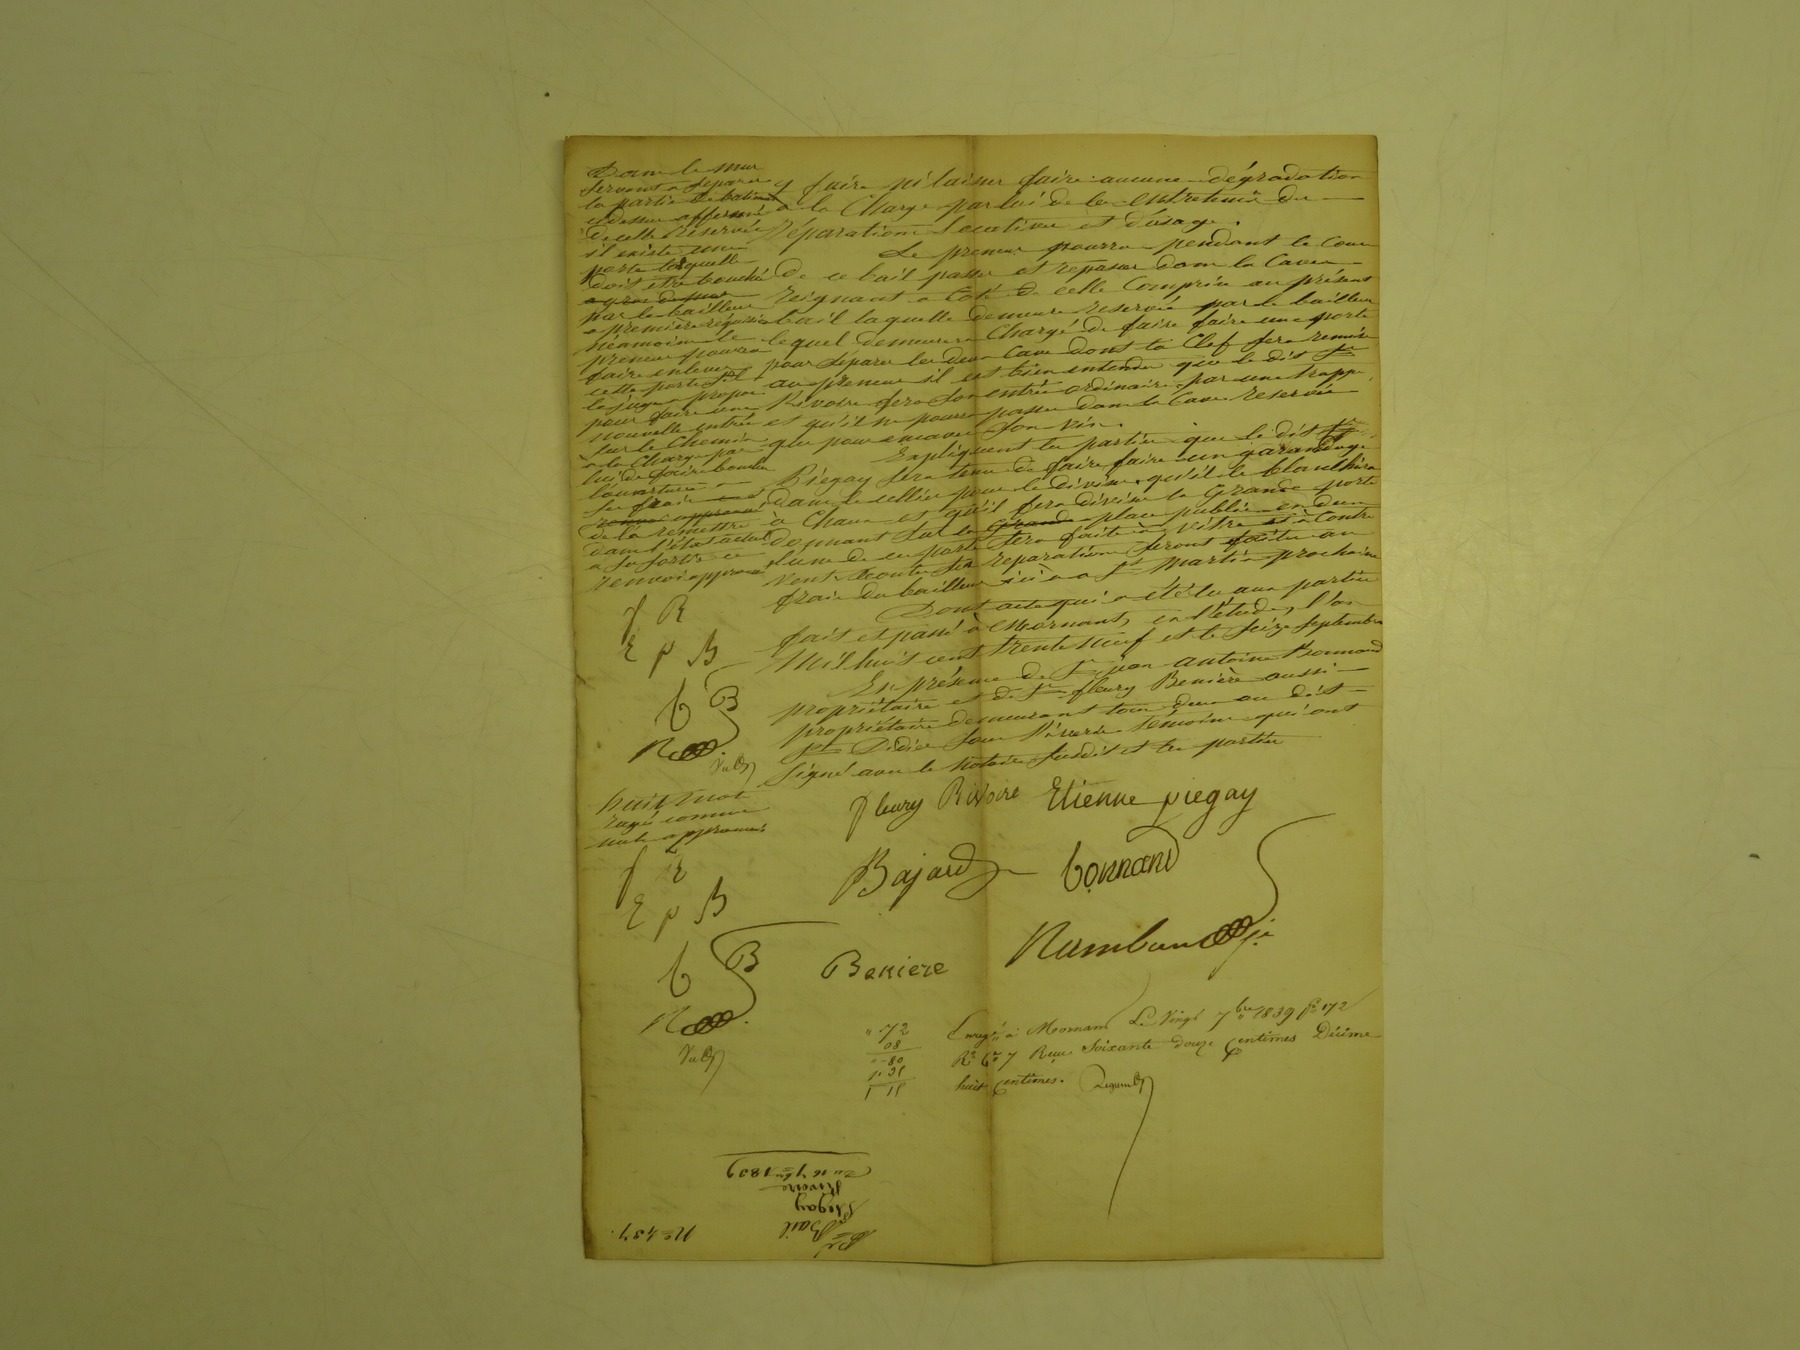 Dans le mur
servant a séparer
la partie de batiment
ci dessus affermée
de celle réservée
il existe une
porte laquelle
doit etre bouchée
par le bailleur
a première réquisition
néanmoins le
preneur pourra
faire enlever
cette porte s'il
le juge a propos
pour faire une
nouvelle entrée
sur le chemin
a la charge par
lui de faire boucher
l'ouverture a
ses frais et
renvoi approuvé
de la remettre
dans l'état actuel
a sa sortie ce
renvoi approuvé
f R
E p B
b B
R
huit mots
rayés comme
nuls approuvés
f R
E p B
b B
R
y faire ni laisser faire aucune dégradation
à la charge par lui de les entretenir de
réparations locatives et d'usage.
Le preneur pourra pendant le cours
de ce bail passer et repasser dans la cave
reignant a coté de celle comprise au présent
bail laquelle demeure réservée par le bailleur
lequel demeurera chargé de faire faire une porte
pour séparer les deux caves dont la clef sera remise
au preneur il est bien entendu que le dit Sr
Rivoire fera son entrée ordinaire par une trappe
et qu'il ne pourra passer dans la cave réservée
que pour encaver son vin.
Expliquent les parties que le dit Sr
Piégay sera tenu de faire faire un garandage
dans le cellier pour le diviser, qu'il le blanchira
à chaux et qu'il fera diviser la grande porte
donnant sur la grande place publique en deux
l'une de ces portes sera faite à vitre et à contre
vent toutes ces réparations seront faites au
frais du bailleur d'ici a la St Martin prochaine
Dont acte qui a été lu aux parties
fait et passé à Mornant, en l'étude, l'an
Mil huit cent trente neuf et le seize septembre
En présence de Sr jean antoine Bonnand
propriétaire et de Sr fleury Benière aussi
propriétaire demeurant tous deux au dit
St Didier sous Riverie témoins qui ont
signé avec le notaire susdit et les parties
fleury Rivoire Etienne piegay
Bajard bonnand
Beniere
" 72
08
" 80
1 35
1 15
Enregé à Mornant Le Vingt 7bre 1839 fo 172
Ro Ce 7 Reçu Soixante douze centimes Décime
huit centimes.
Du 16 7bre 1839
Rivoire
Piégay
Bail
No 437.